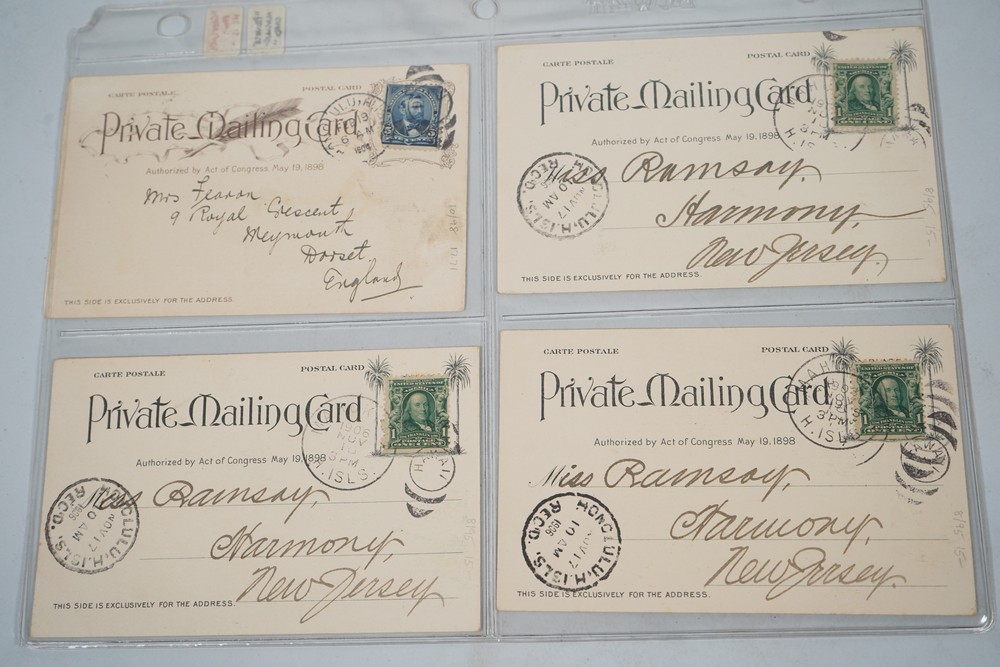 CARTE POSTALE
POSTAL CARD
Private Mailing Card
Authorized by Act of Congress May 19, 1898
Mrs Fearon
9 Royal Crescent
Weymouth
Dorset
England
THIS SIDE IS EXCLUSIVELY FOR THE ADDRESS.
10/98
CARTE POSTALE
POSTAL CARD
Private Mailing Card
Authorized by Act of Congress May 19, 1898
HONOLULU, H.ISLS.
NOV 17
10 AM
REC'D.
Miss Ramsay,
Harmony,
New Jersey.
THIS SIDE IS EXCLUSIVELY FOR THE ADDRESS.
8/95 15-
CARTE POSTALE
POSTAL CARD
Private Mailing Card
Authorized by Act of Congress May 19, 1898
1906
NOV
3 PM
H.ISLS.
HAWAII
HONOLULU, H.ISLS.
NOV 17
10 AM
1906
REC'D.
Miss Ramsay,
Harmony,
New Jersey.
THIS SIDE IS EXCLUSIVELY FOR THE ADDRESS.
8/95 15-
CARTE POSTALE
POSTAL CARD
Private Mailing Card
Authorized by Act of Congress May 19, 1898
3 PM
H.ISLS.
HONOLULU, H.ISLS.
NOV 17
10 AM
1906
REC'D.
Miss Ramsay,
Harmony,
New Jersey.
THIS SIDE IS EXCLUSIVELY FOR THE ADDRESS.
8/95 15-